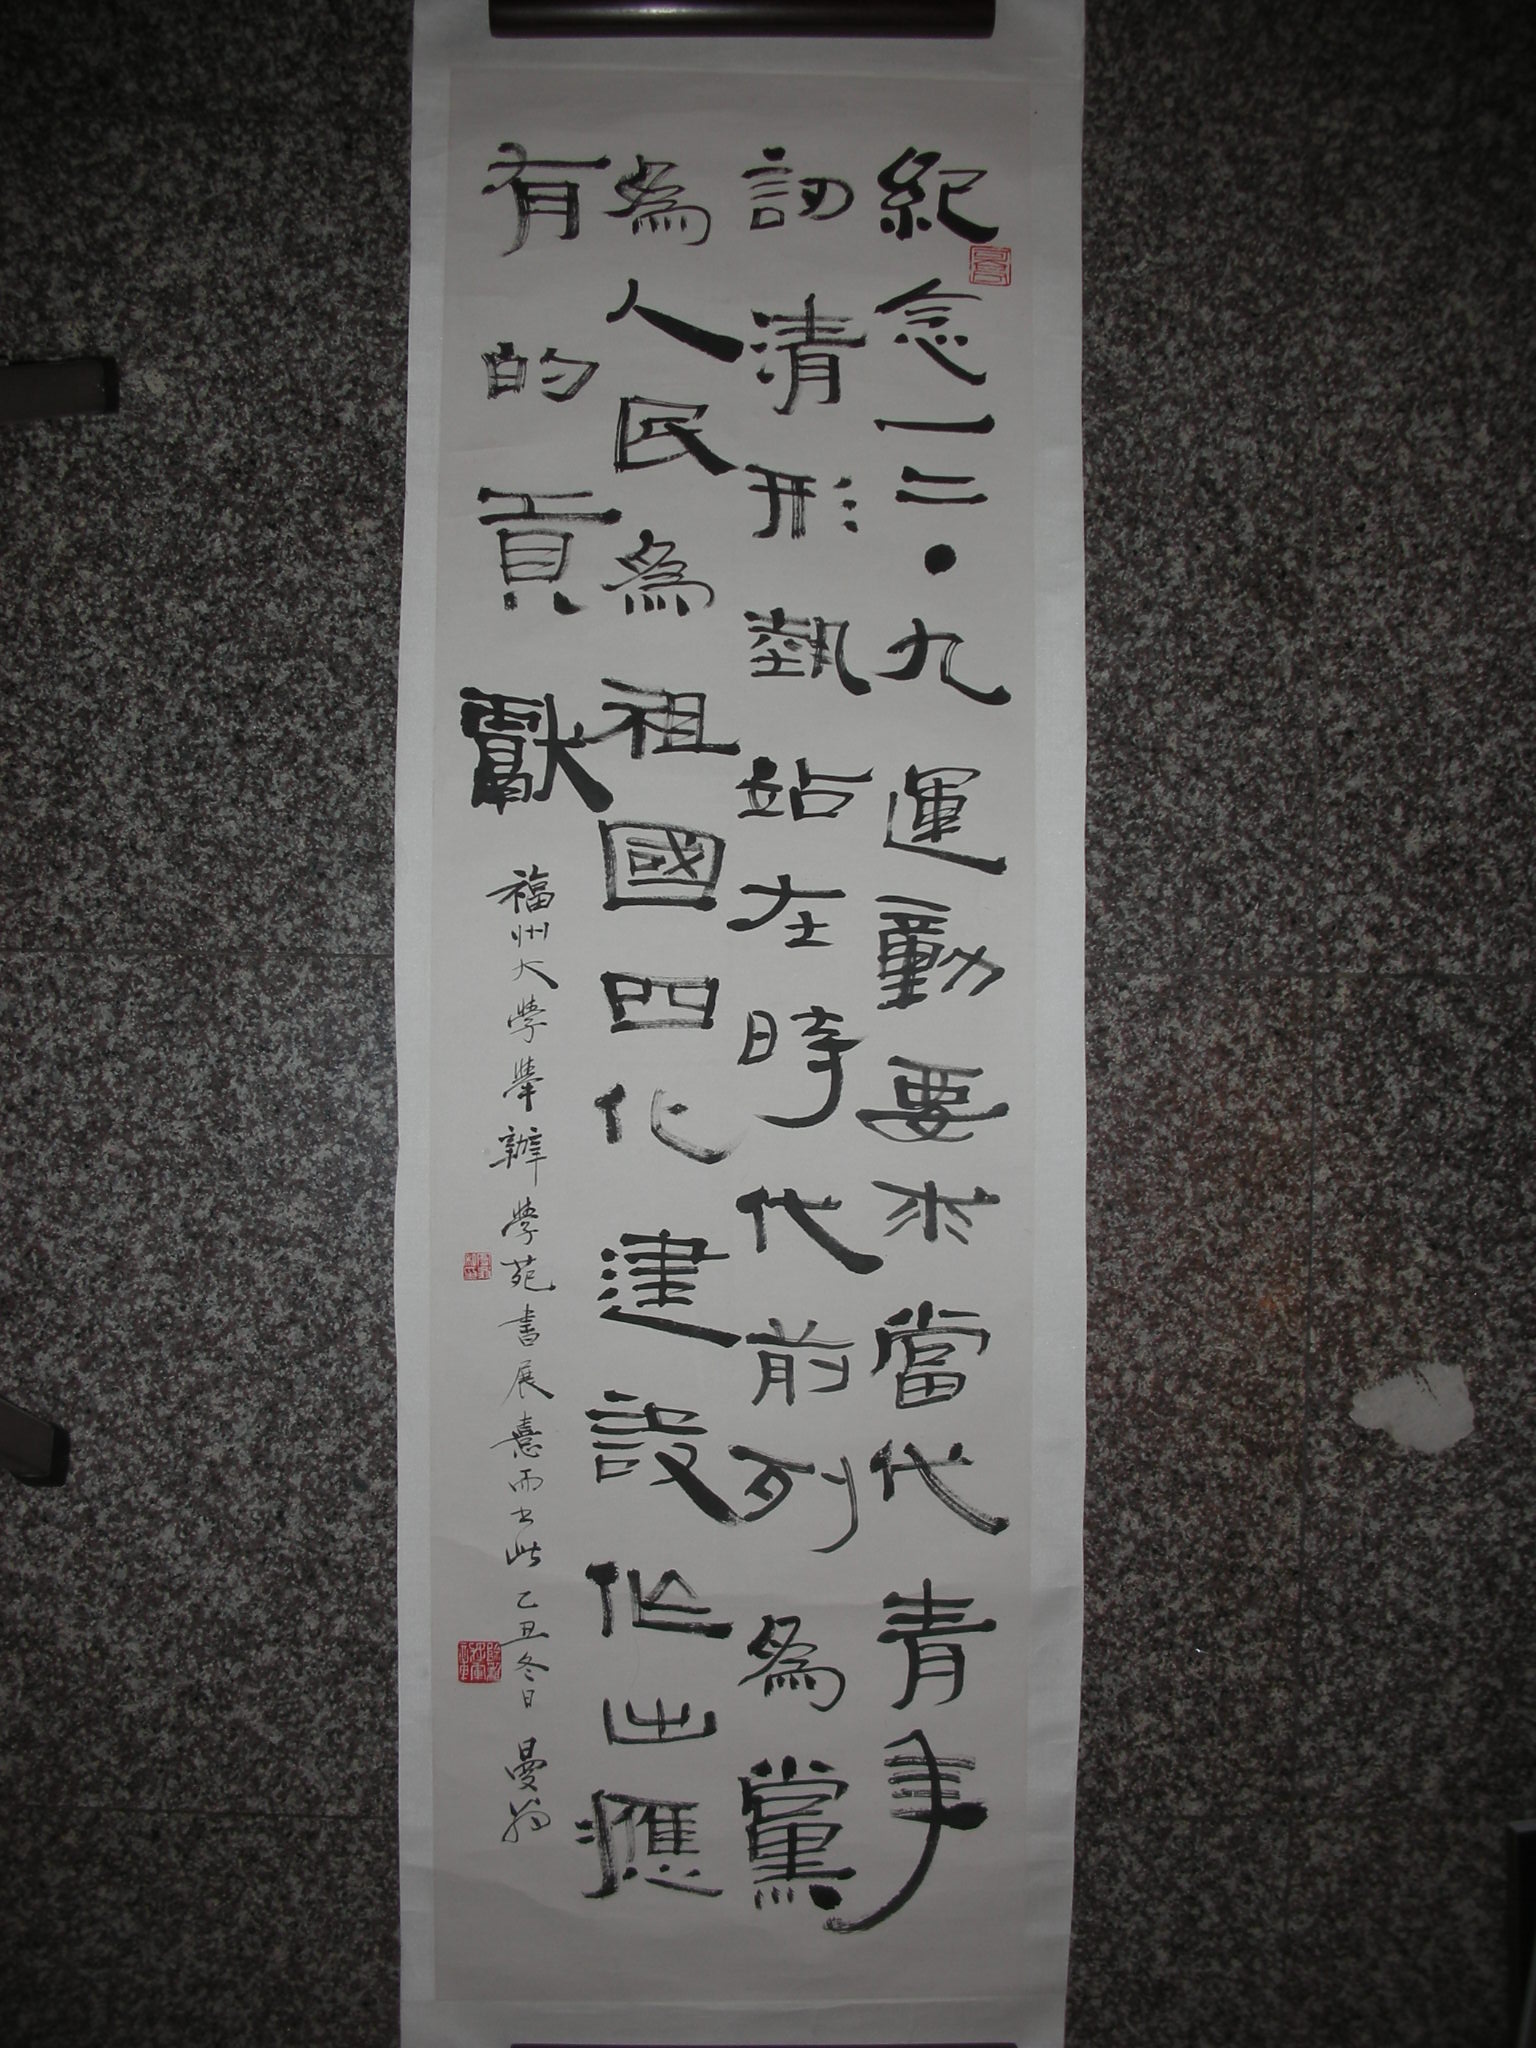 紀念一二·九運動要求當代青年
認清形勢站在時代前列為黨
為人民為祖國四化建設作出應
有的貢獻
福州大學舉辦學苑書展憙而書此乙丑冬日曼翁